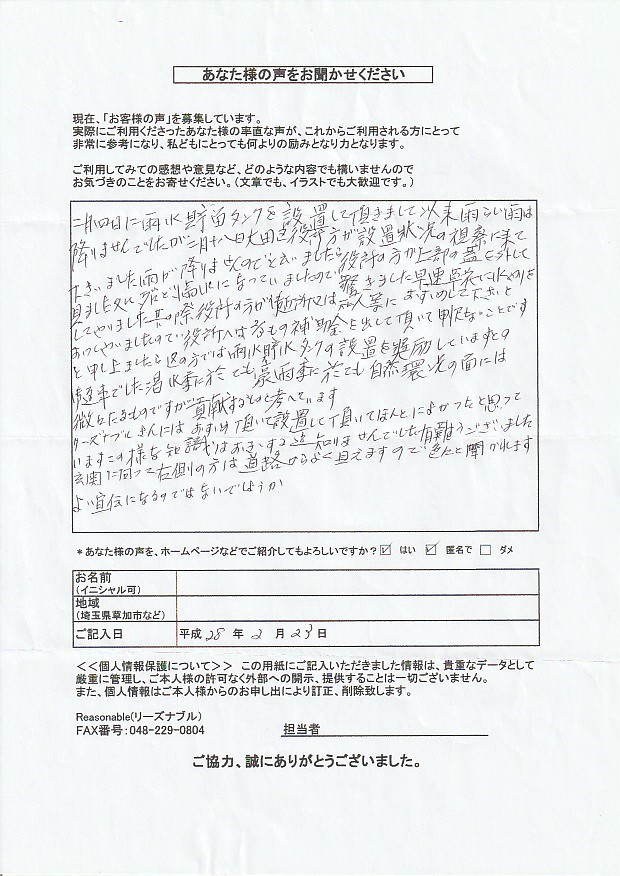 あなた様の声をお聞かせください
現在、「お客様の声」を募集しています。
実際にご利用くださったあなた様の率直な声が、これからご利用される方にとって
非常に参考になり、私どもにとっても何よりの励みとなり力となります。
ご利用してみての感想や意見など、どのような内容でも構いませんので
お気づきのことをお寄せください。（文章でも、イラストでも大歓迎です。）
二月四日に雨水貯留タンクを設置して頂きまして以来雨らしい雨は
降りませんでしたが二月十八日大田区役所の方が設置状況の視察に来て
下さいました雨が降りませんのでと云いましたら役所の方が上部の蓋を外して
見ました処 殆ど満水になっていましたので驚きました早速草花に水やりを
してやりました 其の際役所の方が
ので役所へは 補助金を出して頂いて 申訳ないことです
と申し上ましたら区の方では雨水貯水タンクの設置を奨励していますとの
事でした渇水季に於ても豪雨季に於ても自然環境の面には
微々たるものですが貢献するものと考へています
リーズナブルさんには 頂いて設置して頂いてほんとによかったと思って
いますこの様な知識は 迄知りませんでした有難うございました
玄関に向って右側の方は道路からよく見えますので色々と聞かれます
よい宣伝になるのではないでしょうか
＊あなた様の声を、ホームページなどでご紹介してもよろしいですか？ ☑ はい ☑ 匿名で □ ダメ
お名前
（イニシャル可）
地域
（埼玉県草加市など）
ご記入日 平成 28 年 2 月 23 日
＜＜個人情報保護について＞＞ この用紙にご記入いただきました情報は、貴重なデータとして
厳重に管理し、ご本人様の許可なく外部への開示、提供することは一切ございません。
また、個人情報はご本人様からのお申し出により訂正、削除致します。
Reasonable(リーズナブル)
FAX番号：048-229-0804 担当者
ご協力、誠にありがとうございました。